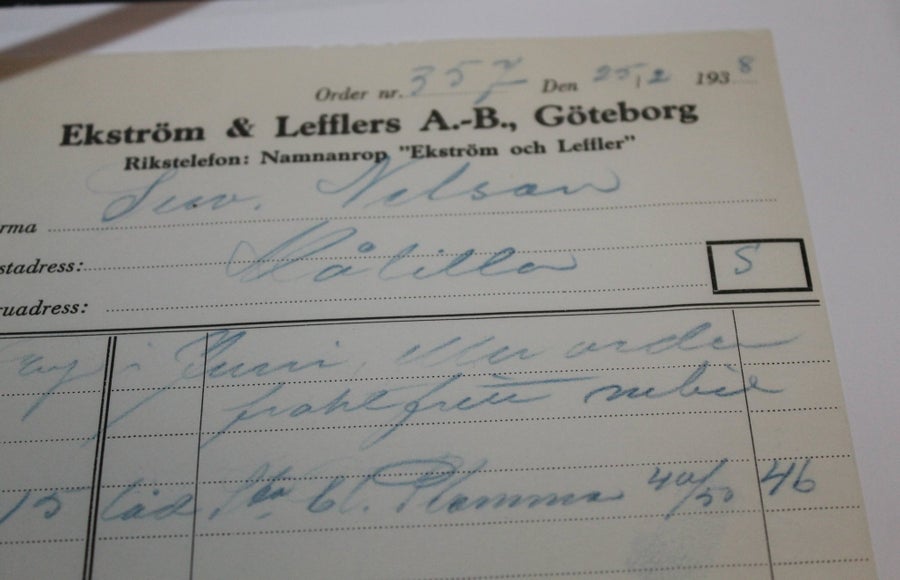 Order nr. 357 Den 25/2 1938
Ekström & Lefflers A.-B., Göteborg
Rikstelefon: Namnanrop "Ekström och Leffler"
rma Nelson
stadress: Målilla S
ruadress:
i Juni, order
fraktfritt
15 låd Plommon 40/50 46